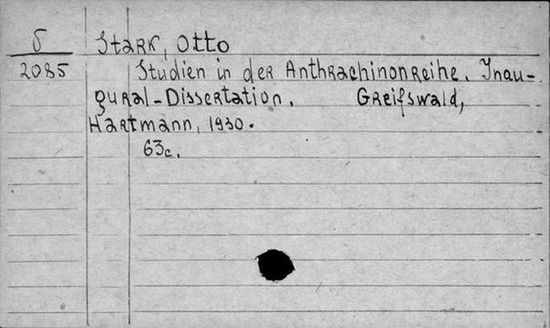 5 Stark, Otto
2085 Studien in der Anthrachinonreihe. Inau-
gural-Dissertation. Greifswald,
Hartmann, 1930.
63c.